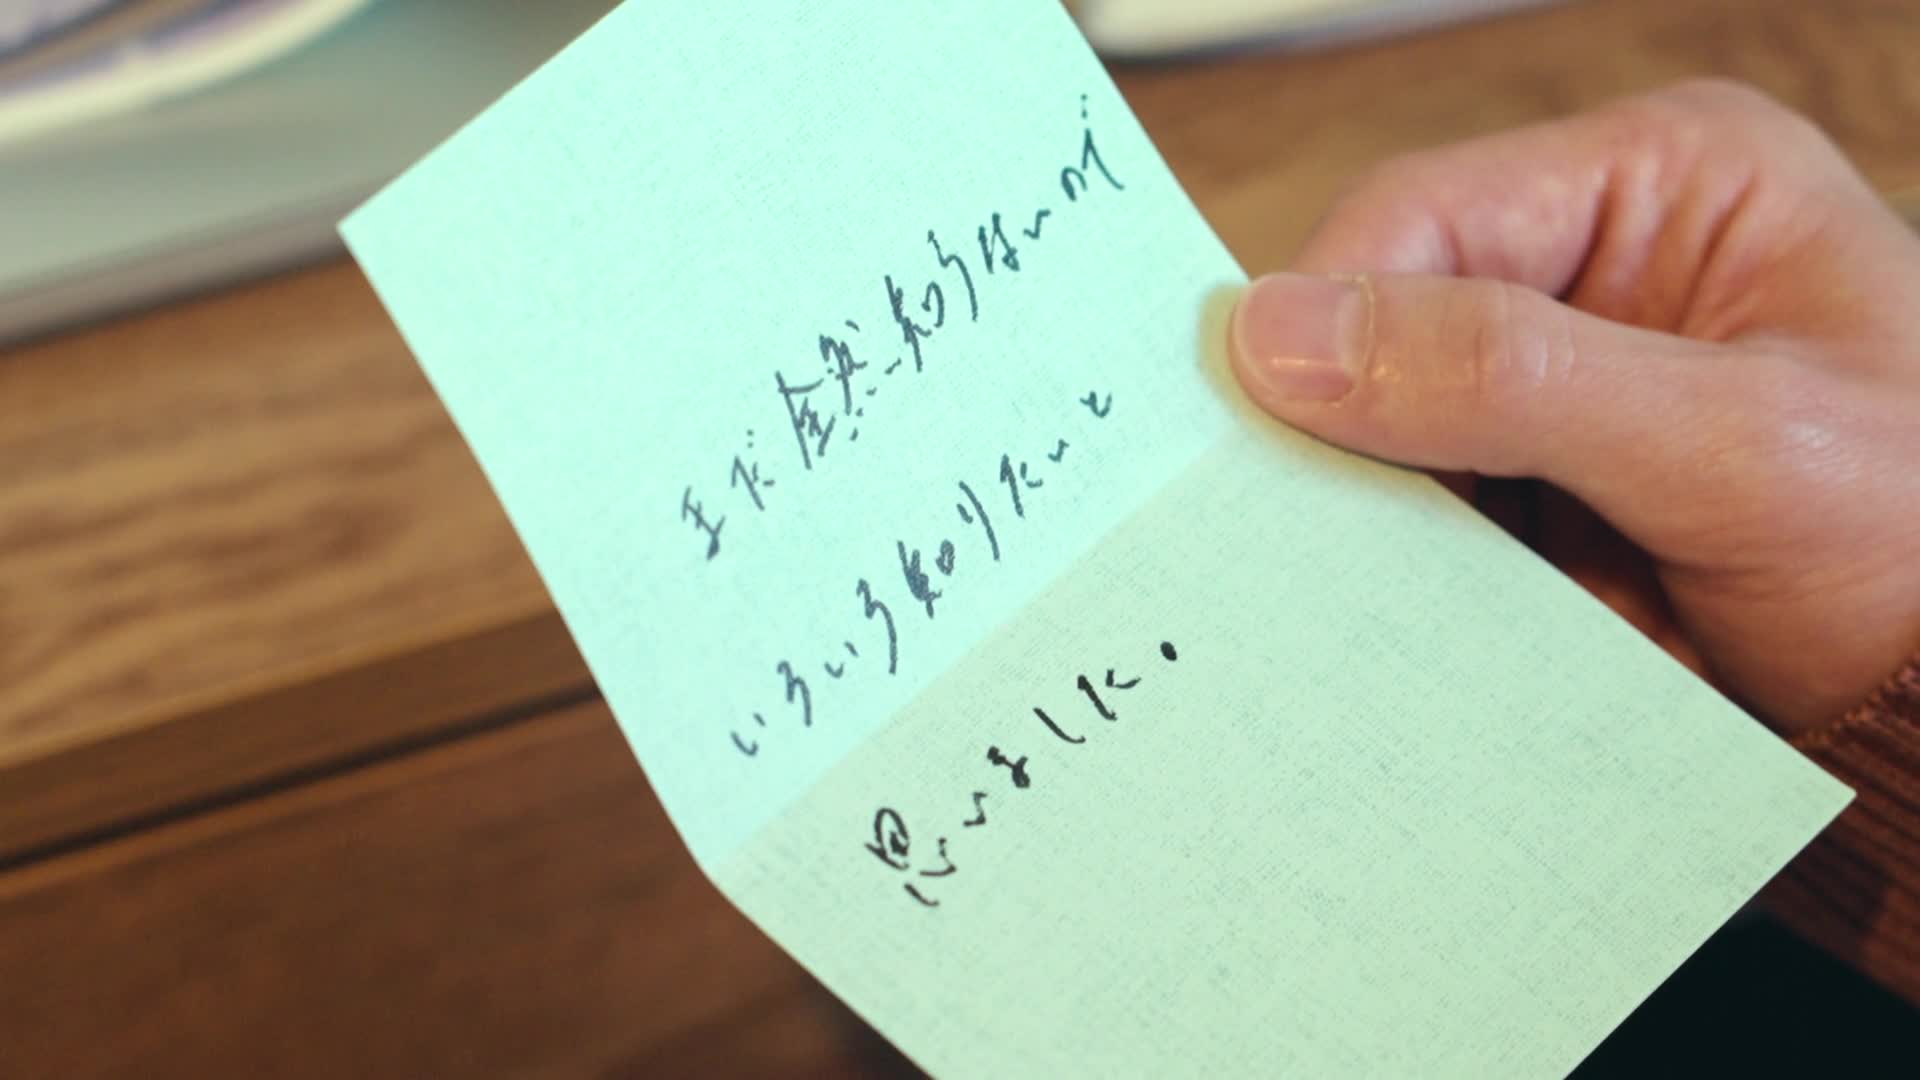 まだ全然知らないので
いろいろ知りたいと
思いました。